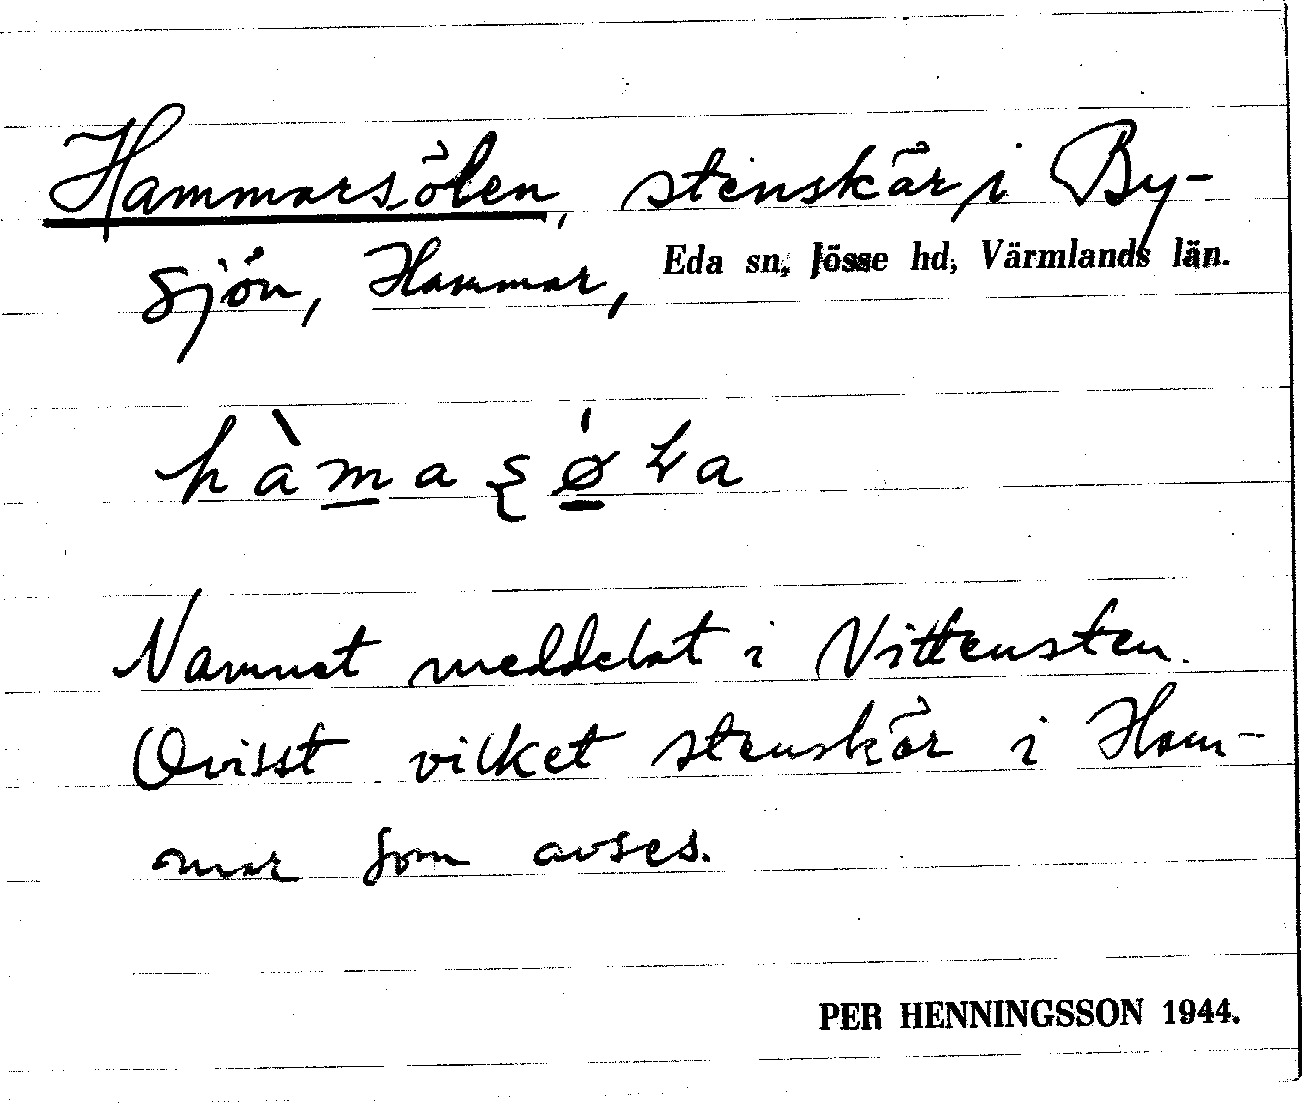 Hammarsölen, stenskär i By-
sjön, Hammar, Eda sn, Jösse hd, Värmlands län.
hàmaʂǿ̱ɽa
Namnet meddelat i Vittensten.
Ovisst vilket stenskär i Ham-
mar som avses.
PER HENNINGSSON 1944.